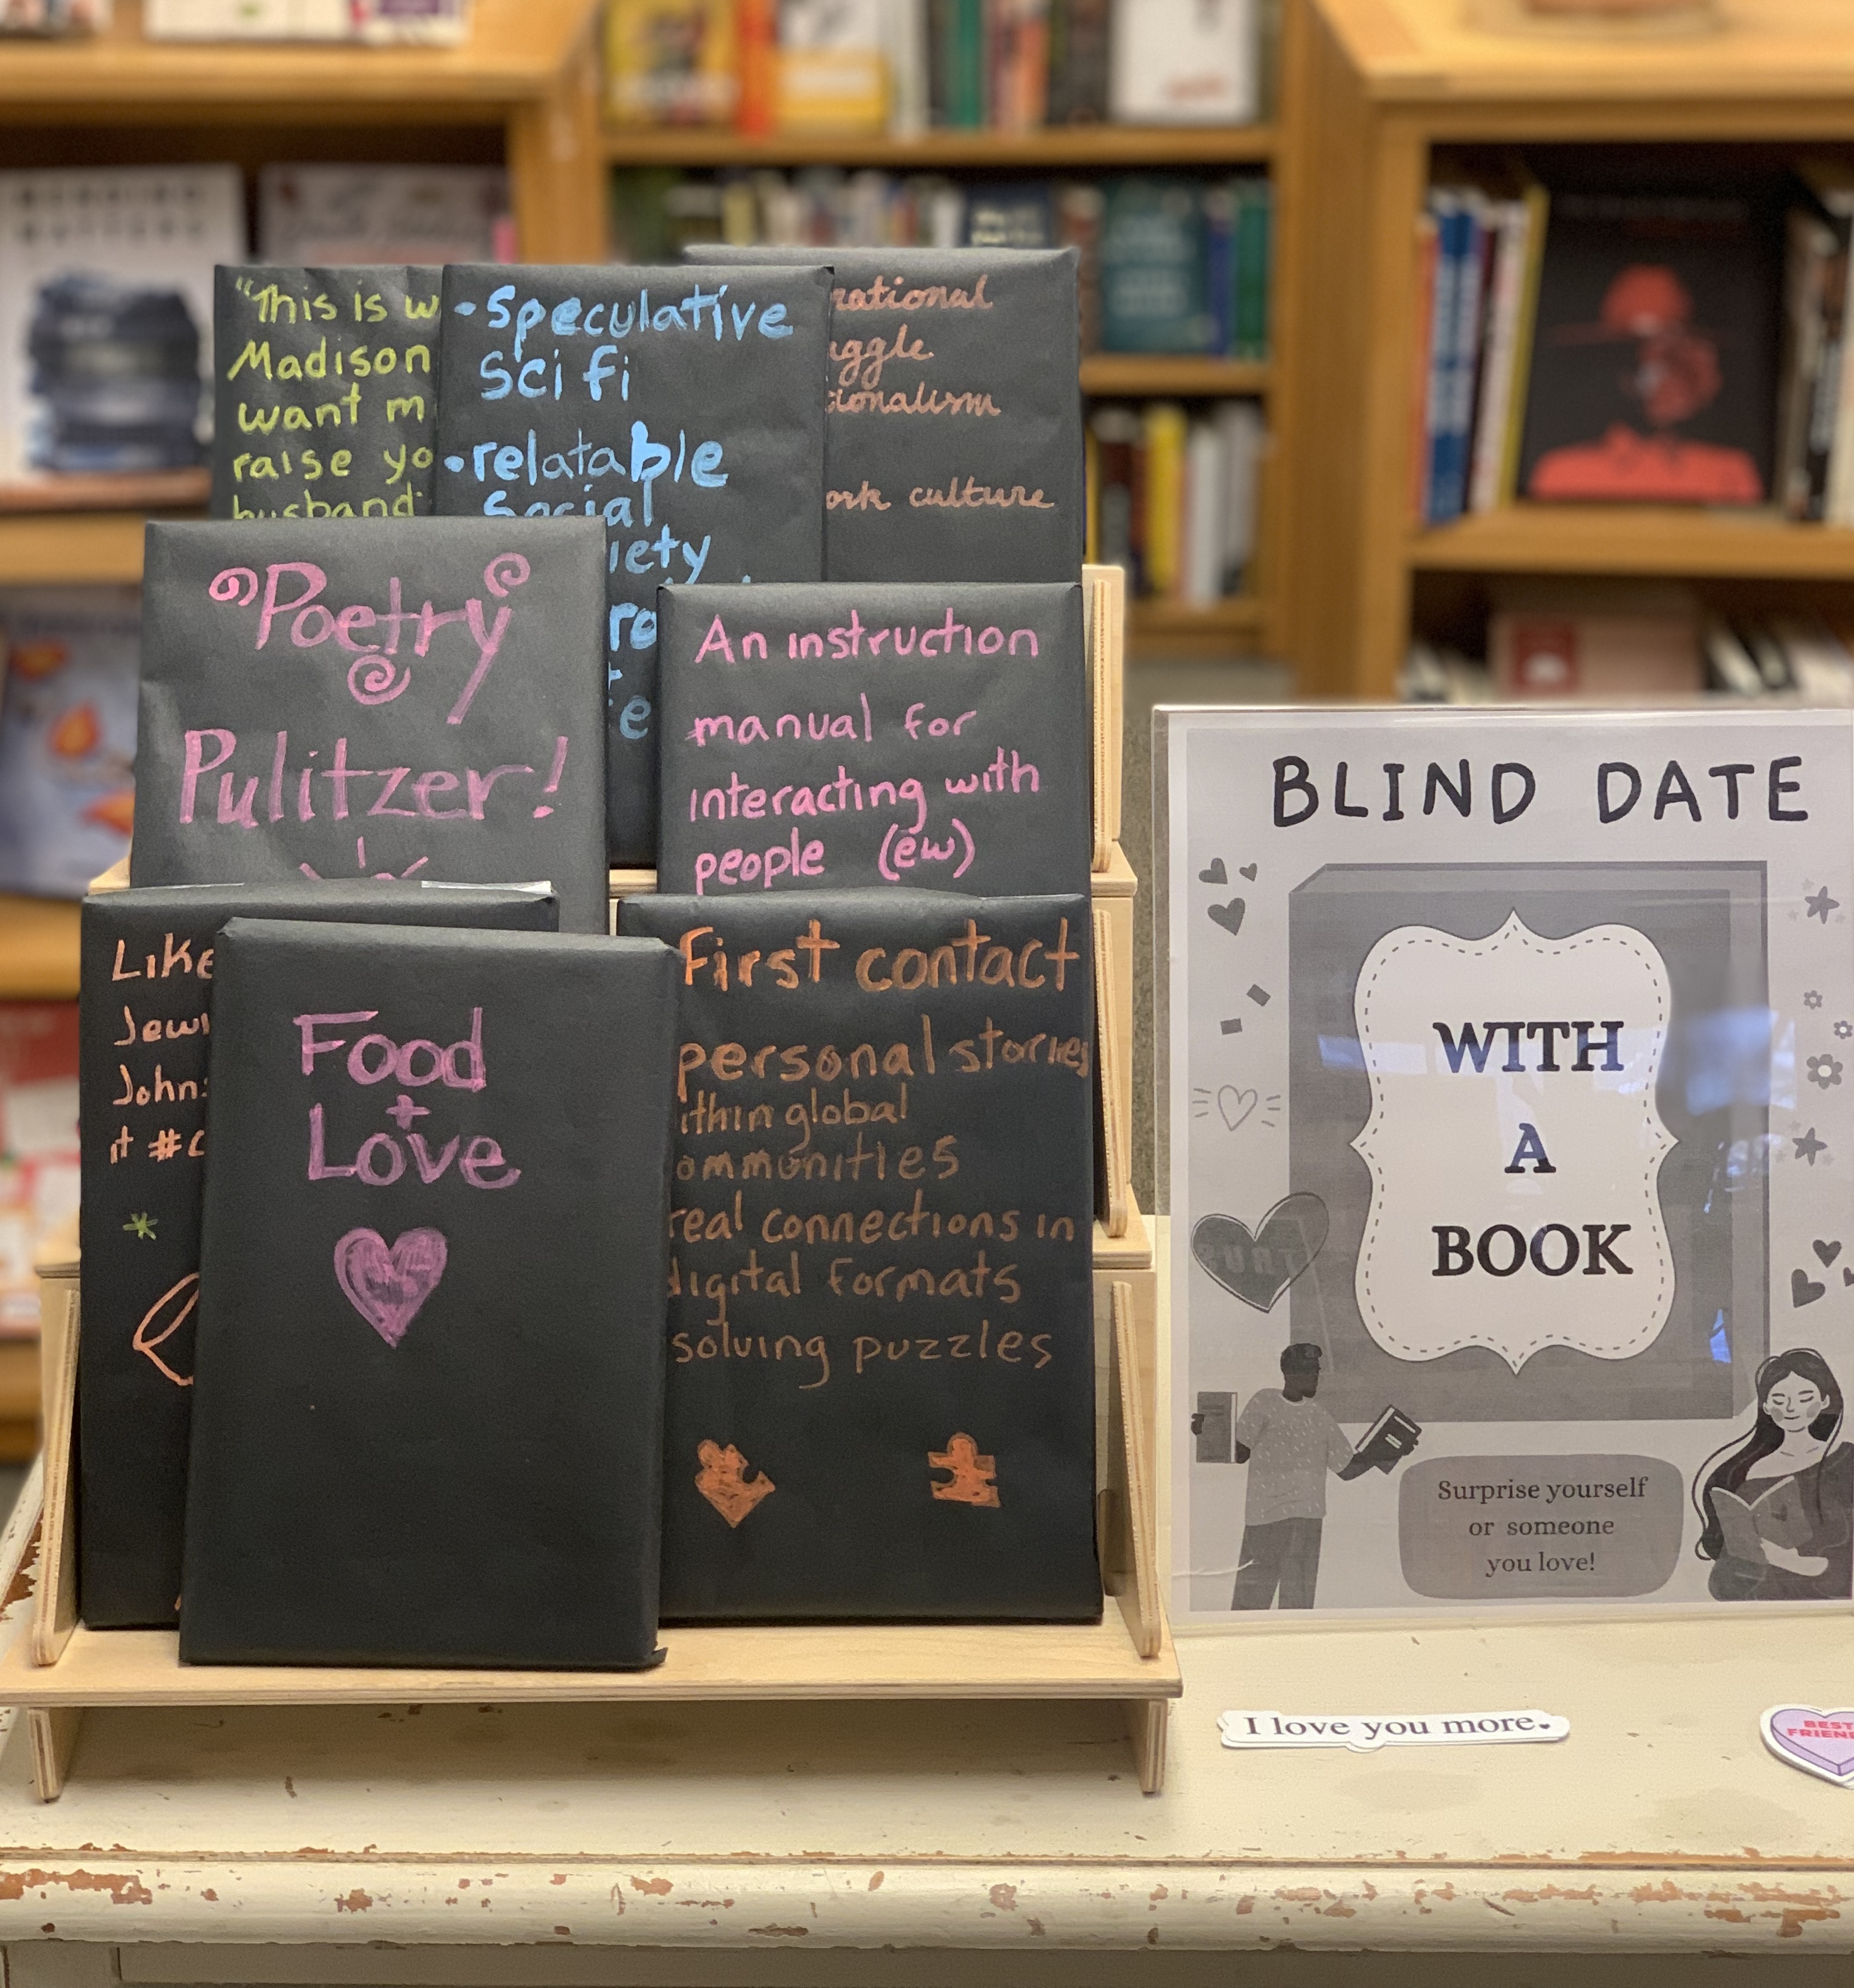 "This is w
Madison
want m
raise yo
husband
• speculative
sci fi
• relatable
social
iety
ro
e
rational
uggle
ionalism
ork culture
Poetry
Pulitzer!
An instruction
manual for
interacting with
people (ew)
Like
Jewi
Johns
it #C
Food
+
Love
First contact
personal stories
ithin global
ommunities
real connections in
digital formats
solving puzzles
BLIND DATE
WITH
A
BOOK
Surprise yourself
or someone
you love!
I love you more.
BEST
FRIEN